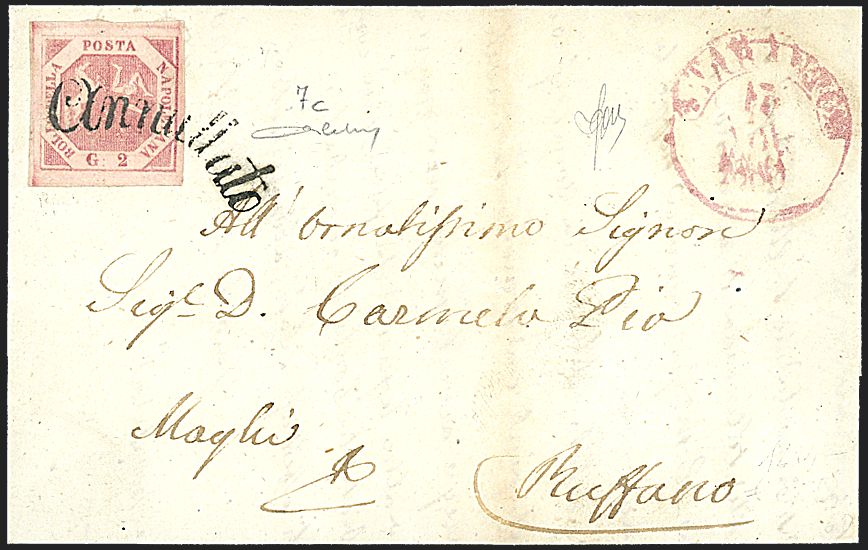 BOLLO DELLA
POSTA
NAPOLETANA
G. 2
Annullato
7c
All' ornatissimo Signore
Sig.r D. Carmelo Pio
Maglie
Ruffano